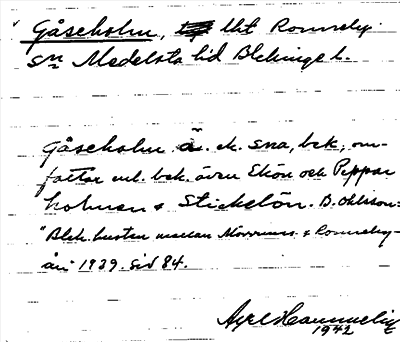 Gåseholm, lht Ronneby.
sn Medelsta hd Blekinge l.
Gåseholm ä. ek. sna, bck, om-
fattar enl. bek. även Ekön och Peppar
holmen & Stickelön. B. Ohlsson:
"Blek. kusten mellan Mörrums- & Ronneby-
ån" 1939. Sid 84.
Axel
1942